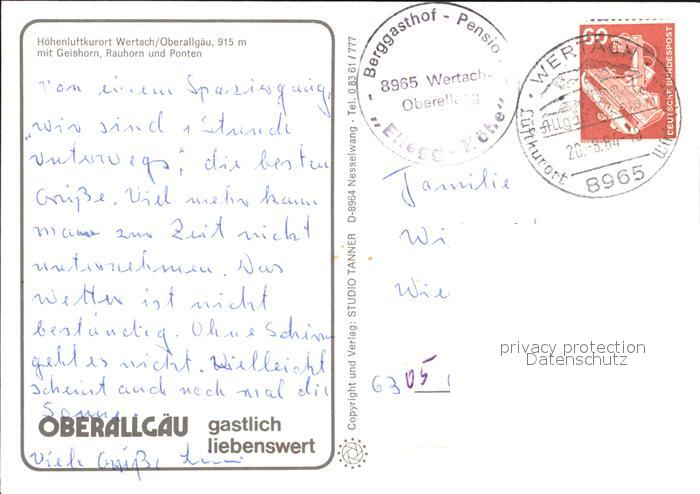 Höhenluftkurort Wertach/Oberallgäu, 915 m
mit Geishorn, Rauhorn und Ponten
Von einem Spaziergang,
"wir sind 1 Stunde
unterwegs", die besten
Grüße. Viel mehr kann
mann zur Zeit nicht
unternehmen. Das
Wetter ist nicht
beständig. Ohne Schirm
geht es nicht. Vielleicht
scheint auch noch mal die
Sonne.
OBERALLGÄU gastlich
liebenswert
Viele Grüße
Copyright und Verlag: STUDIO TANNER D-8964 Nesselwang · Tel. 0 83 61 / 777
Berggasthof - Pension
8965 Wertach-
Oberellegg
"Ellegg-Höhe"
60
DEUTSCHE BUNDESPOST
WERTACH
Allgäu
Luftkurort
8965
Familie
Wi
Wie
6305
privacy protection
Datenschutz